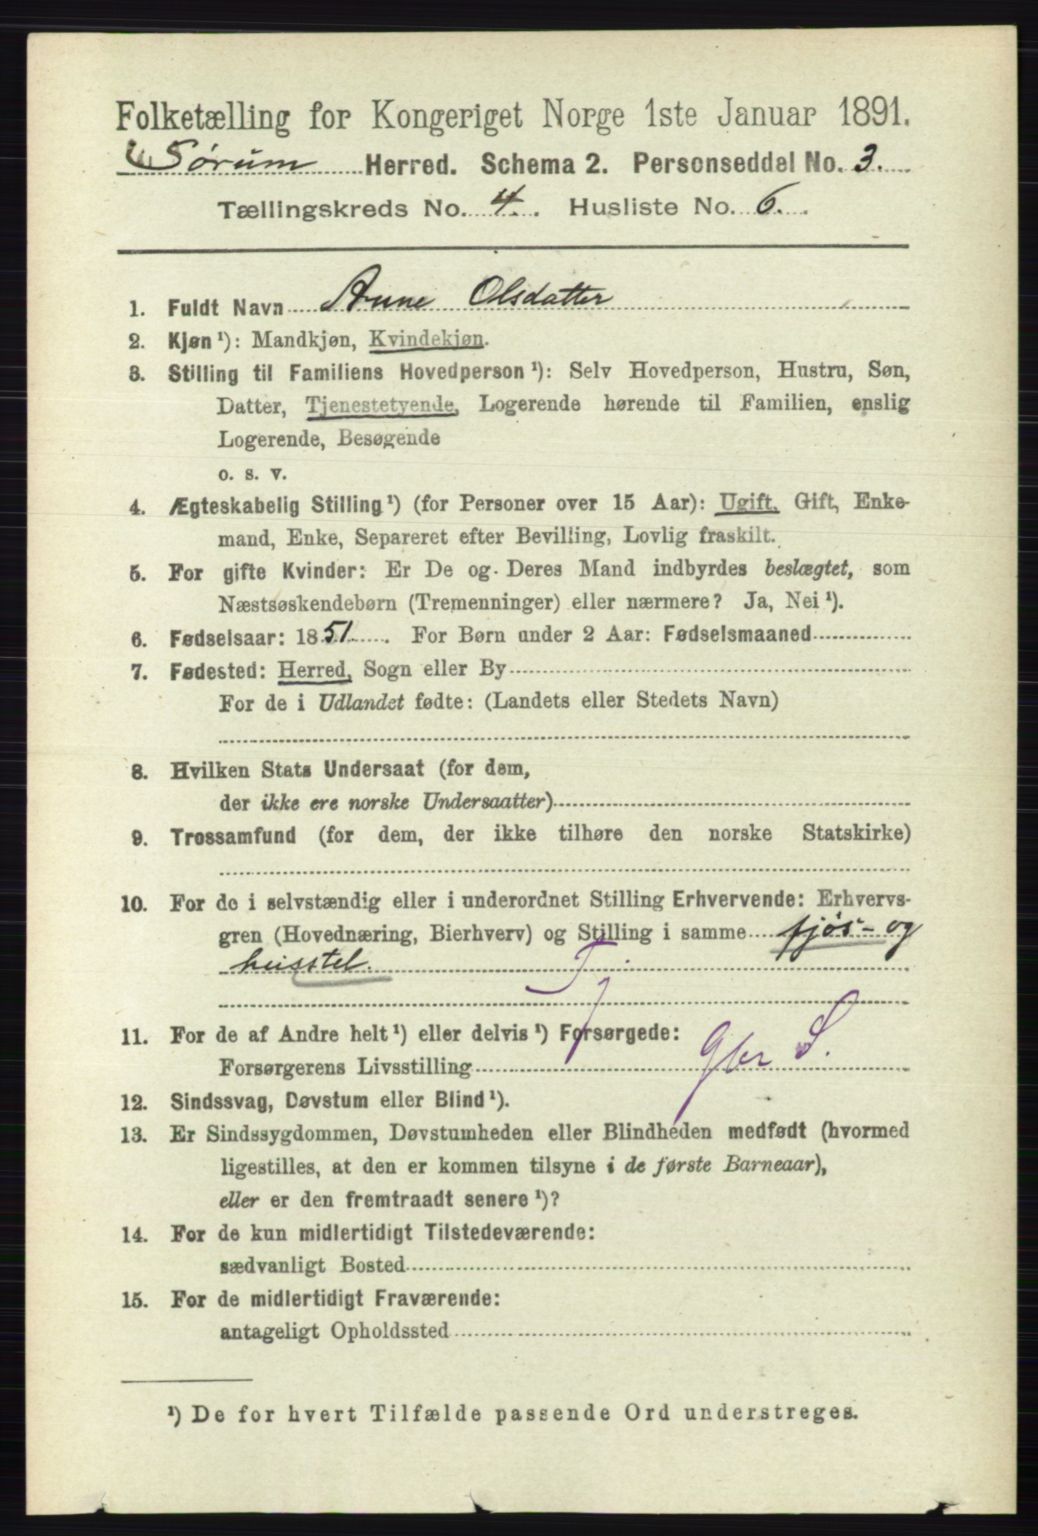 Folketælling for Kongeriget Norge 1ste Januar 1891.
Sørum Herred. Schema 2. Personseddel No. 3.
Tællingskreds No. 4. Husliste No. 6.
1. Fuldt Navn Anne Olsdatter
2. Kjøn ¹): Mandkjøn, Kvindekjøn.
3. Stilling til Familiens Hovedperson ¹): Selv Hovedperson, Hustru, Søn,
Datter, Tjenestetyende, Logerende hørende til Familien, enslig
Logerende, Besøgende
o. s. v.
4. Ægteskabelig Stilling ¹) (for Personer over 15 Aar): Ugift, Gift, Enke-
mand, Enke, Separeret efter Bevilling, Lovlig fraskilt.
5. For gifte Kvinder: Er De og Deres Mand indbyrdes beslægtet, som
Næstsøskendebørn (Tremenninger) eller nærmere? Ja, Nei ¹).
6. Fødselsaar: 1851. For Børn under 2 Aar: Fødselsmaaned
7. Fødested: Herred, Sogn eller By
For de i Udlandet fødte: (Landets eller Stedets Navn)
8. Hvilken Stats Undersaat (for dem,
der ikke ere norske Undersaatter)
9. Trossamfund (for dem, der ikke tilhøre den norske Statskirke)
10. For de i selvstændig eller i underordnet Stilling Erhvervende: Erhvervs-
gren (Hovednæring, Bierhverv) og Stilling i samme fjøs- og
husstel. Tj.
11. For de af Andre helt ¹) eller delvis ¹) Forsørgede:
Forsørgerens Livsstilling Gbr S.
12. Sindssvag, Døvstum eller Blind ¹).
13. Er Sindssygdommen, Døvstumheden eller Blindheden medfødt (hvormed
ligestilles, at den er kommen tilsyne i de første Barneaar),
eller er den fremtraadt senere ¹)?
14. For de kun midlertidigt Tilstedeværende:
sædvanligt Bosted
15. For de midlertidigt Fraværende:
antageligt Opholdssted
¹) De for hvert Tilfælde passende Ord understreges.